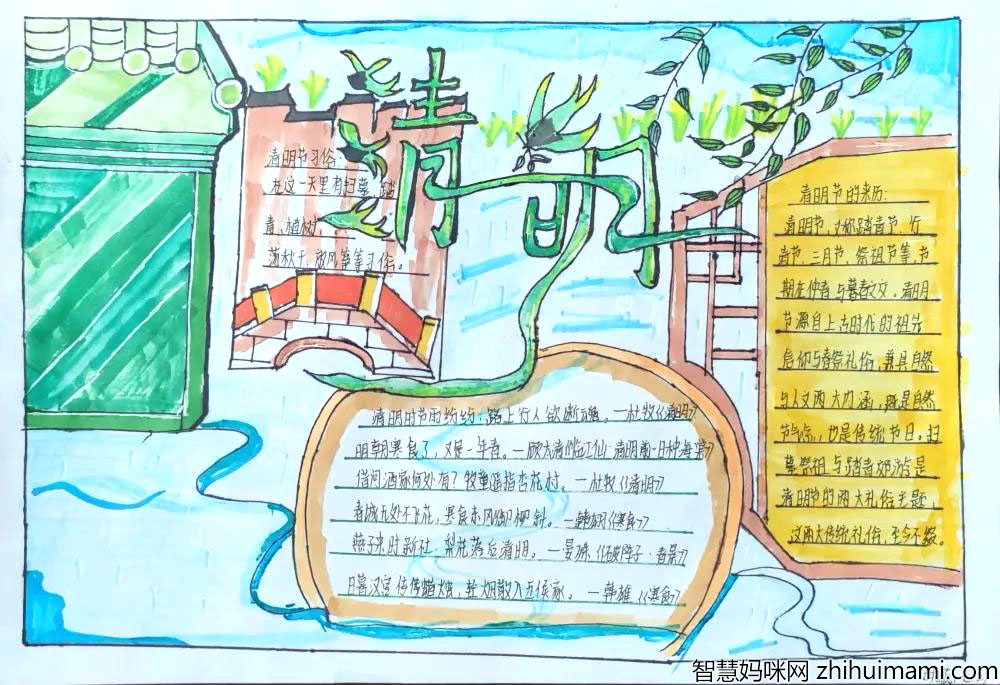 清明
清明节习俗:
在这一天里有扫墓、踏
青、植树、
荡秋千、放风筝等习俗。
清明节的来历:
清明节,又称踏青节、行
青节、三月节、祭祖节等,节
期在仲春与暮春之交。清明
节源自上古时代的祖先
信仰与春祭礼俗,兼具自然
与人文两大内涵,既是自然
节气,也是传统节日。扫
墓祭祖与踏青郊游是
清明节的两大礼俗主题,
这两大传统礼俗,至今不辍。
清明时节雨纷纷,路上行人欲断魂。—杜牧《清明》
明朝寒食了,又是一年春。—顾太清《临江仙·清明前一日种海棠》
借问酒家何处有?牧童遥指杏花村。—杜牧《清明》
春城无处不飞花,寒食东风御柳斜。—韩翃《寒食》
燕子来时新社,梨花落后清明。—晏殊《破阵子·春景》
日暮汉宫传蜡烛,轻烟散入五侯家。—韩雄《寒食》
智慧妈咪网 zhihuimami.com